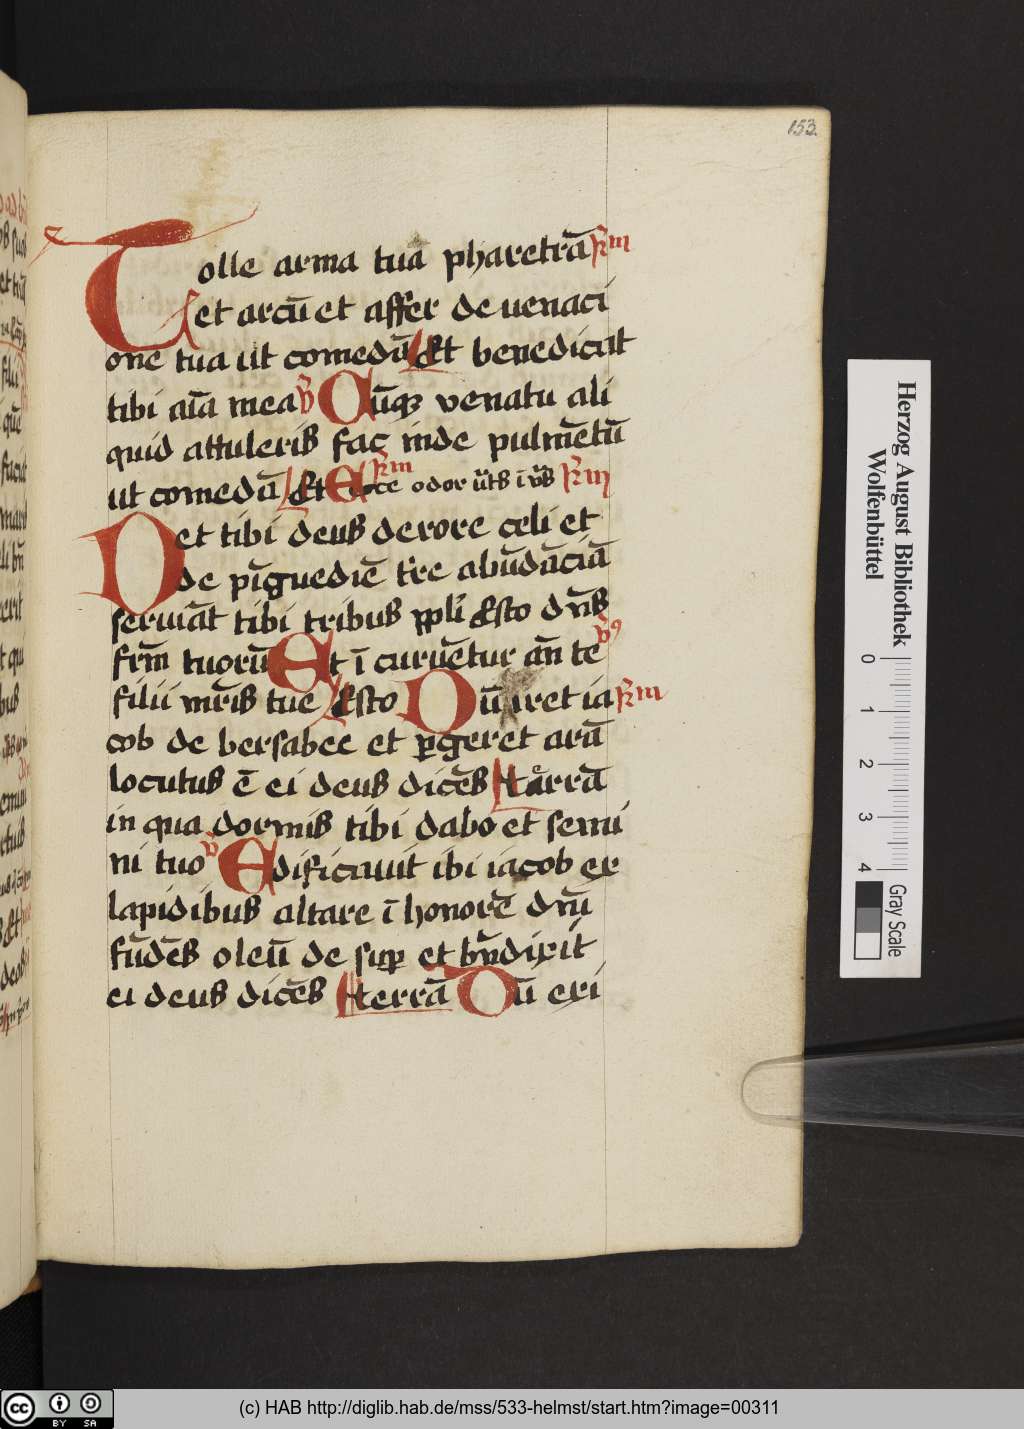 153.
Tolle arma tua pharetrā R̄m
et arcū et affer de uenaci
one tua ut comedā Et benedicat
tibi aīa mea V Cūqꝫ venatu ali
quid attuleris fac inde pulmētū
ut comedā Et Ecce odor R̄m
Det tibi deus de rore celi et
de pīguediē tr̄e abūdāciā
seruiāt tibi tribus ppl'i Esto dn̄s
frm̄ tuorū Et ī curuētur an̄ te V
filii mr̄is tue Esto Dū iret ia R̄m
cob de bersabee et ꝑgeret arā
locutus ē ei deus dicēs terrā
in qua dormis tibi dabo et semi
ni tuo V Edificauit ibi iacob ex
lapidibus altare ī honorē dn̄i
fūdēs oleū de suꝑ et bn̄dixit
ei deus dicēs terrā Dū exi
Herzog August Bibliothek
Wolfenbüttel
0 1 2 3 4
Gray Scale
cc BY SA
(c) HAB http://diglib.hab.de/mss/533-helmst/start.htm?image=00311